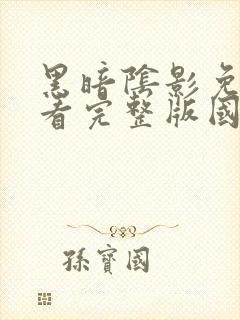 黑暗陰影免
看完整版國
孫寶國